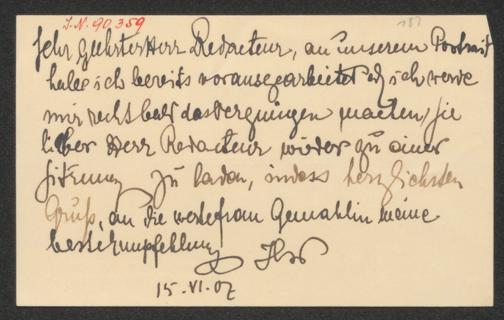 I.N. 90359
187
Sehr geehrter Herr Redacteur, an unserem Portrait
habe ich bereits vorausgearbeitet u ich werde
mir recht bald das Vergnügen machen, Sie
lieber Herr Redacteur wieder zu einer
Sitzung zu laden, indess herzlichsten
Gruß, an die werte Frau Gemahlin meine
beste Empfehlung
15.VI.07